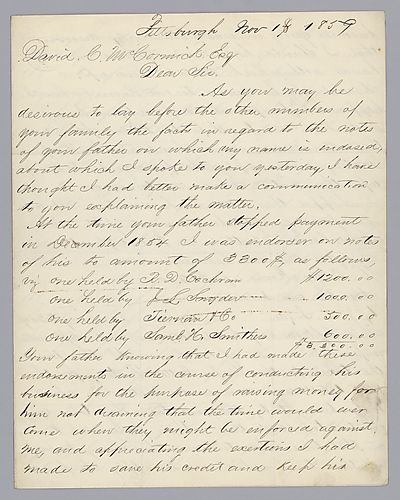 Pittsburgh Nov 18 1859
David. C. McCormick. Esq
Dear Sir.
As you may be
desirous to lay before the other members of
your family the facts in regard to the notes
of your father on which my name is indorsed,
about which I spoke to you yesterday, I have
thought I had better make a communication
to you explaining the matter.
At the time your father stopped payment
in December 1854 I was endorser on notes
of his to amount of $3300$, as follows,
viz one held by R. D. Cochram $1200.00
one held by Snyder 1000.00
one held by Tiernan & Co 500.00
one held by Saml H. Smithers 600.00
$3.300.00
Your father knowing that I had made these
endorsements in the course of conducting his
business for the purpose of raising money for
him not dreaming that the time would ever
come when they might be enforced against
me, and appreciating the exertions I had
made to save his credit and keep his